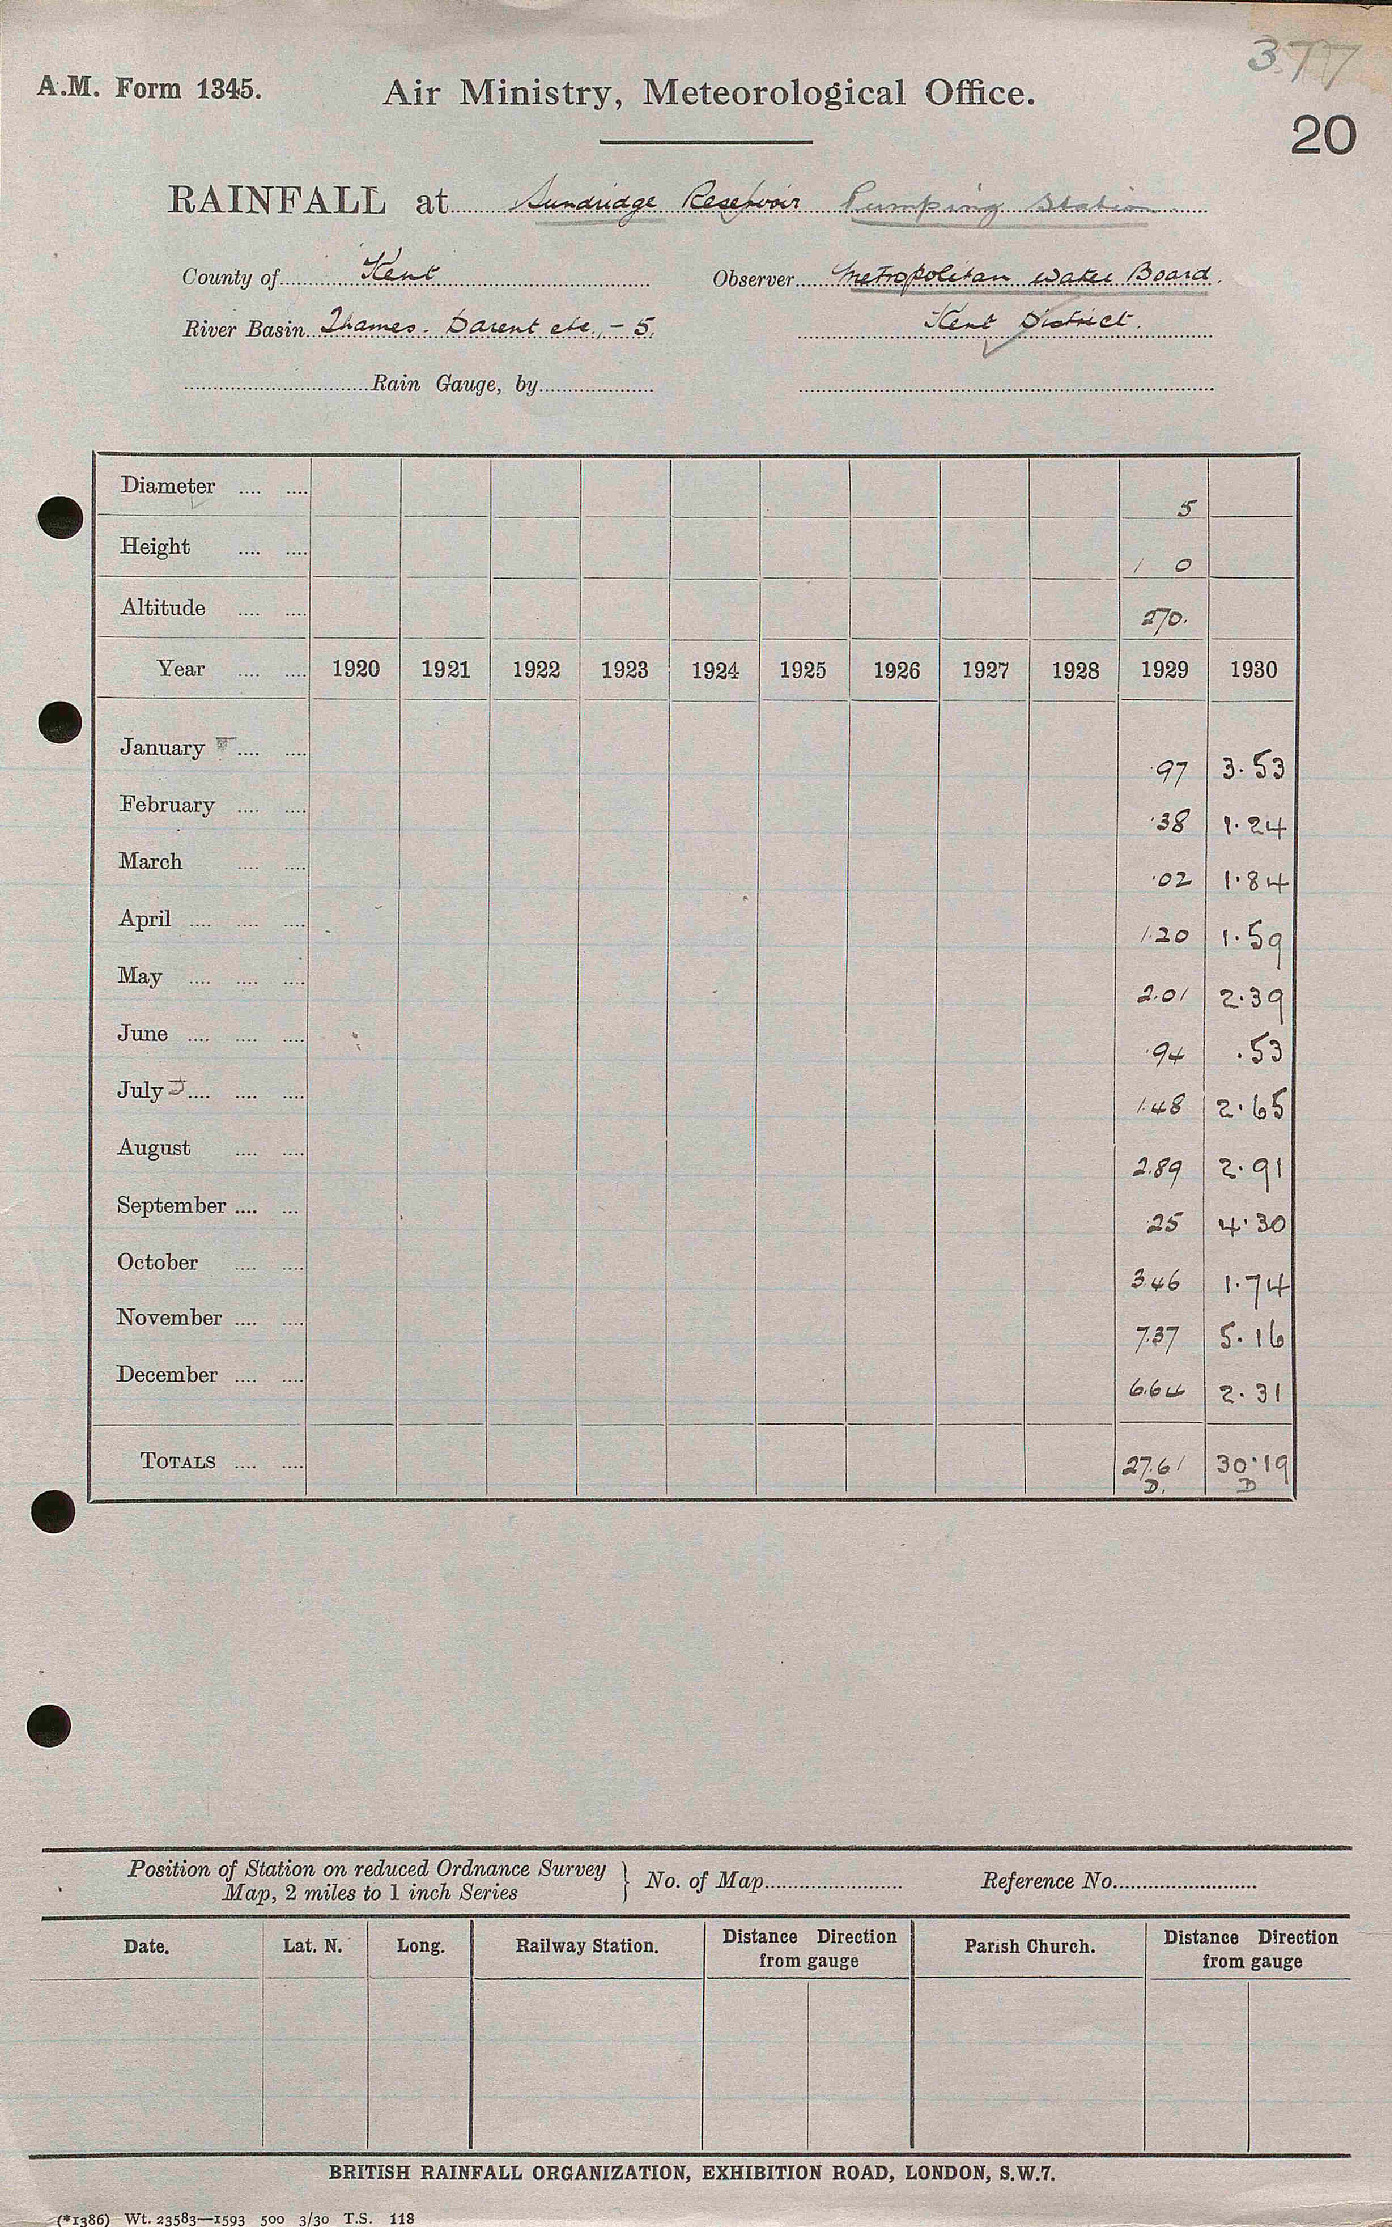 377
A.M. Form 1345. Air Ministry, Meteorological Office.
20
RAINFALL at Sundridge Reservoir Pumping Station
County of Kent Observer Metropolitan Water Board.
River Basin Thames. Darent etc., - 5. Kent District.
Rain Gauge, by
Diameter 5
Height 1 0
Altitude 270.
Year 1920 1921 1922 1923 1924 1925 1926 1927 1928 1929 1930
January .97 3.53
February .38 1.24
March .02 1.84
April 1.20 1.59
May 2.01 2.39
June .94 .53
July 1.48 2.65
August 2.89 2.91
September .25 4.30
October 3.46 1.74
November 7.37 5.16
December 6.64 2.31
TOTALS 27.61 30.19
D. D
Position of Station on reduced Ordnance Survey
Map, 2 miles to 1 inch Series } No. of Map Reference No.
Date. Lat. N. Long. Railway Station. Distance Direction from gauge Parish Church. Distance Direction from gauge
BRITISH RAINFALL ORGANIZATION, EXHIBITION ROAD, LONDON, S.W.7.
(*1386) Wt. 23583—1593 500 3/30 T.S. 118